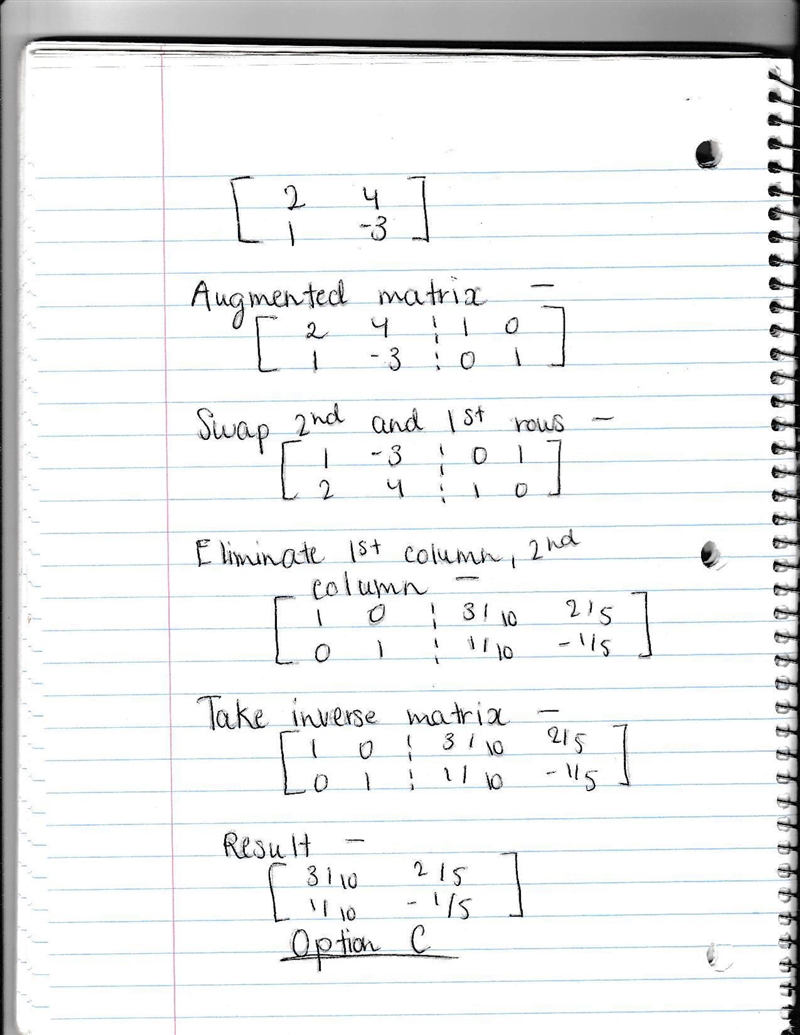 [ 2 4 ]
[ 1 -3 ]
Augmented matrix –
[ 2 4 ¦ 1 0 ]
[ 1 -3 ¦ 0 1 ]
Swap 2nd and 1st rows –
[ 1 -3 ¦ 0 1 ]
[ 2 4 ¦ 1 0 ]
Eliminate 1st column, 2nd
column –
[ 1 0 ¦ 3/10 2/5 ]
[ 0 1 ¦ 1/10 -1/5 ]
Take inverse matrix –
[ 1 0 ¦ 3/10 2/5 ]
[ 0 1 ¦ 1/10 -1/5 ]
Result –
[ 3/10 2/5 ]
[ 1/10 -1/5 ]
Option C